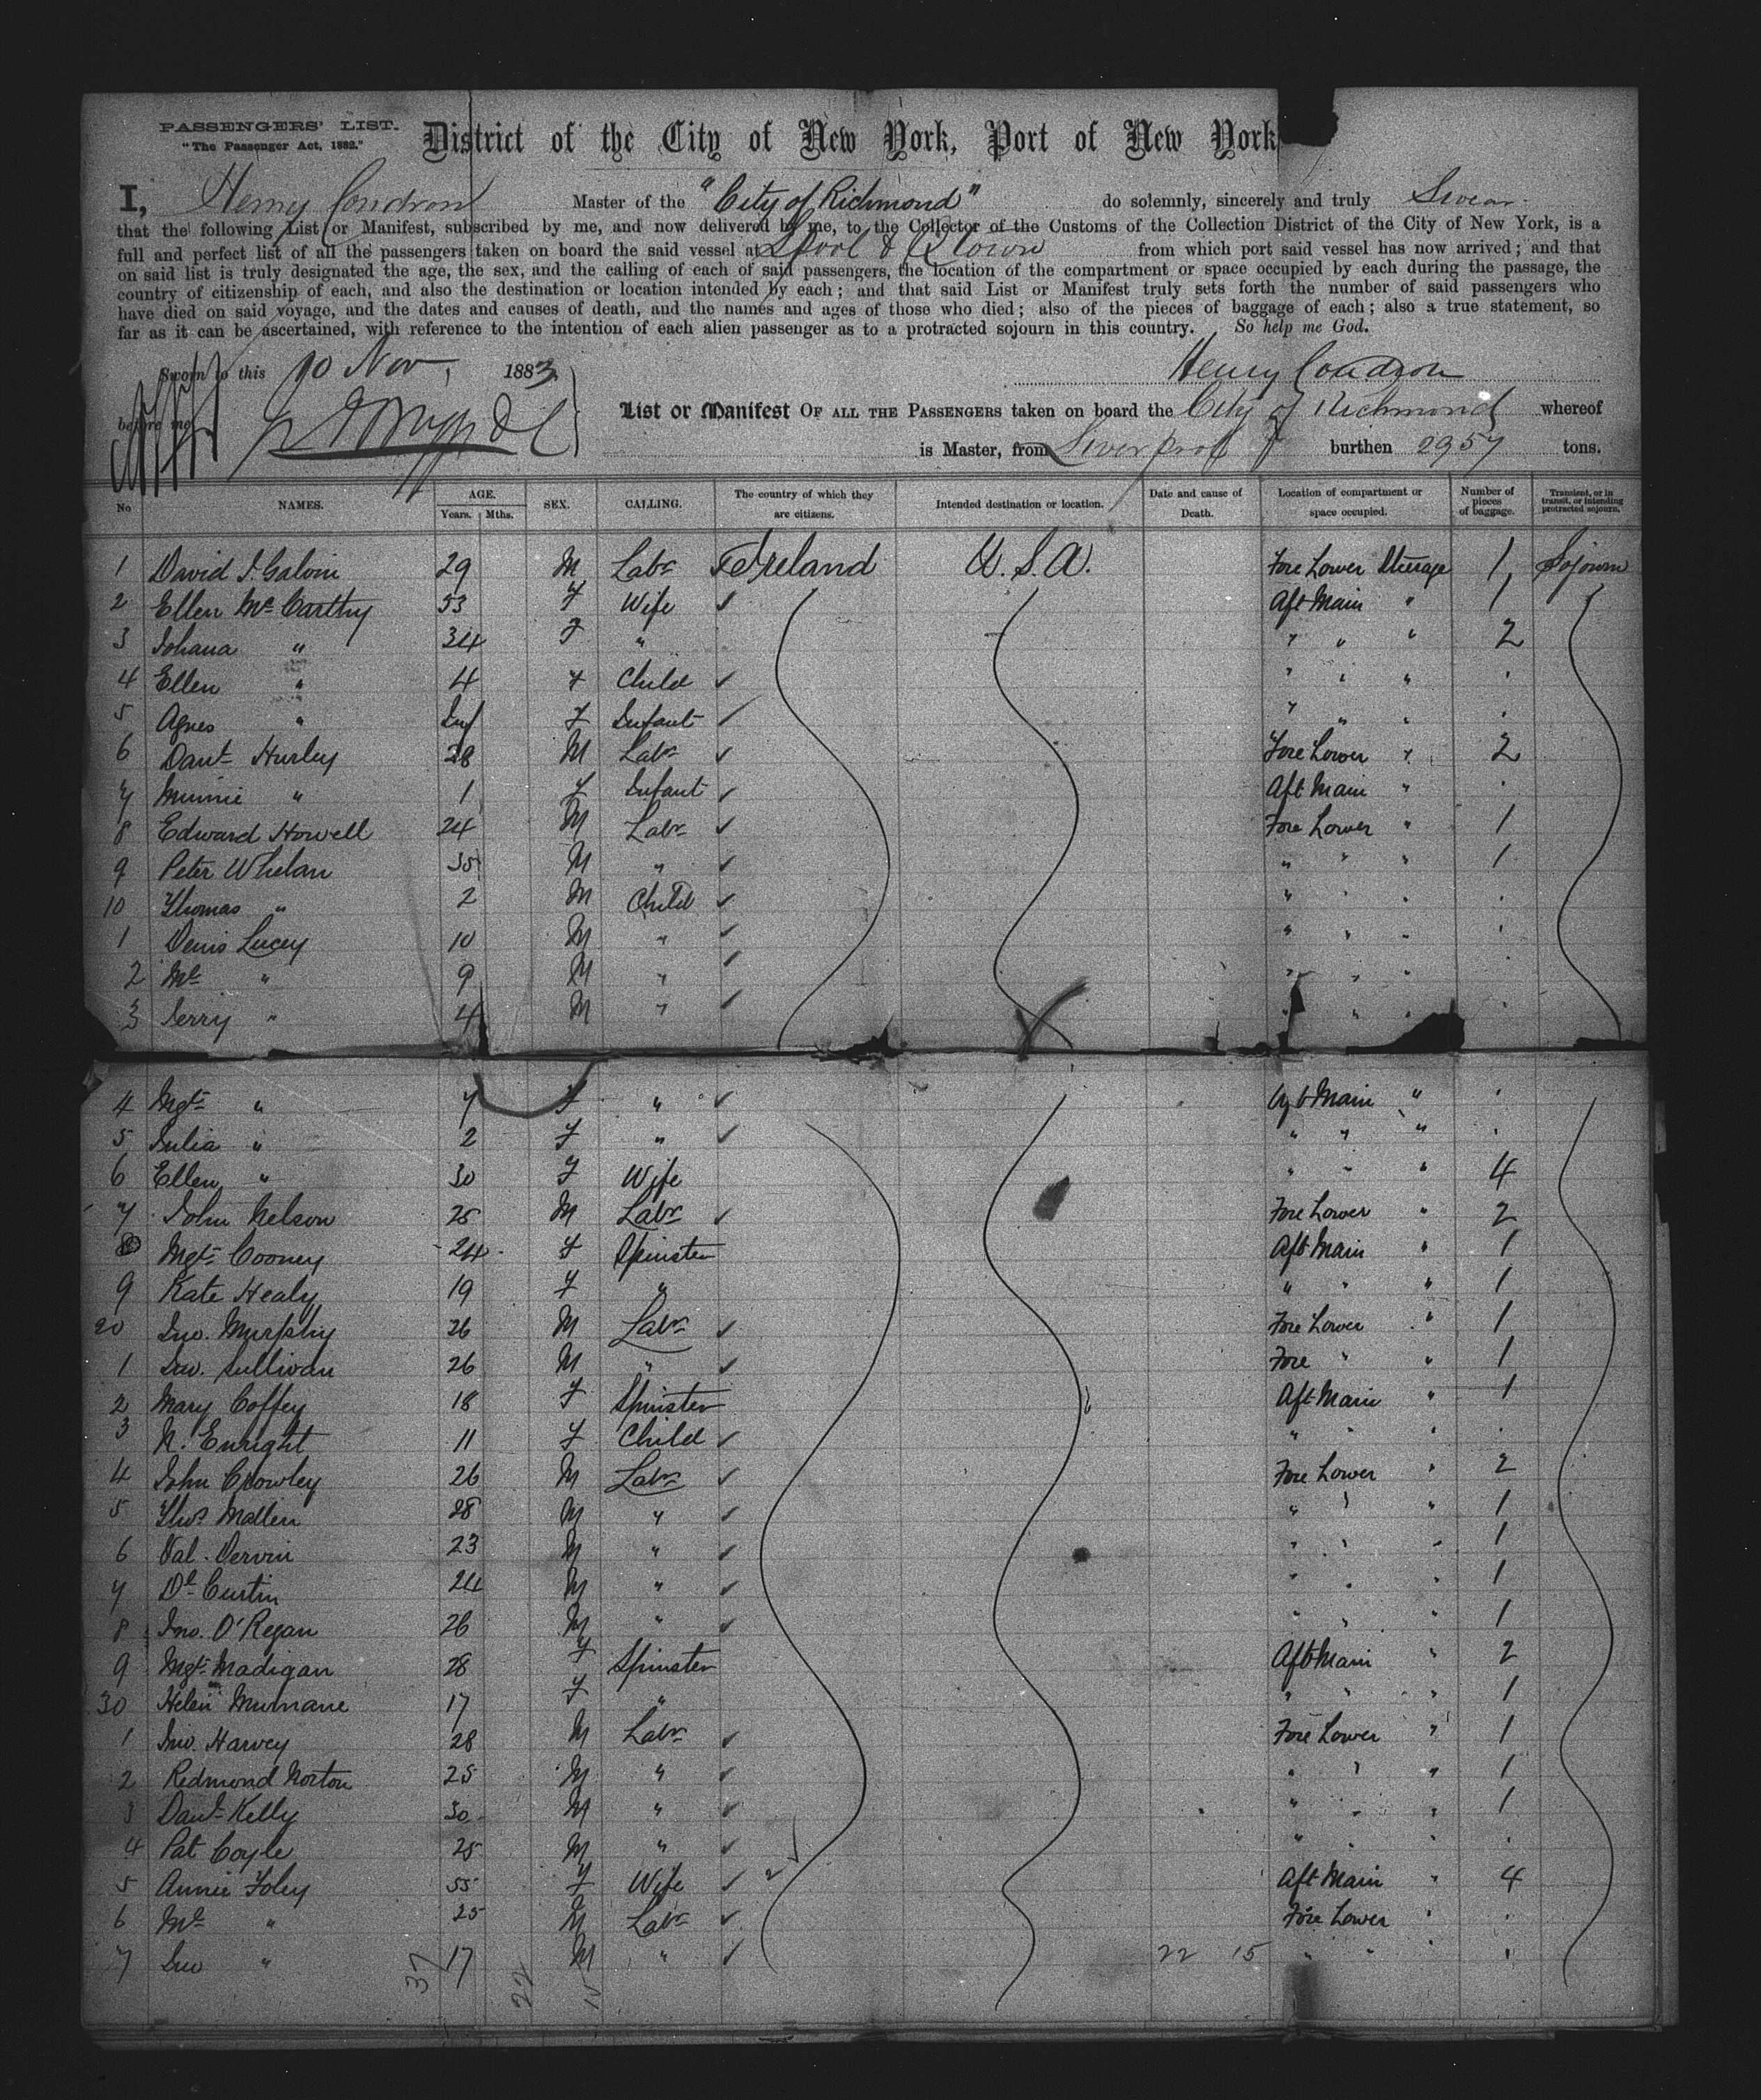 PASSENGERS' LIST.
"The Passenger Act, 1882."
District of the City of New York, Port of New York
I, Henry Condron Master of the "City of Richmond" do solemnly, sincerely and truly Swear.
that the following List or Manifest, subscribed by me, and now delivered by me, to the Collector of the Customs of the Collection District of the City of New York, is a
full and perfect list of all the passengers taken on board the said vessel at Lpool & Qtown from which port said vessel has now arrived; and that
on said list is truly designated the age, the sex, and the calling of each of said passengers, the location of the compartment or space occupied by each during the passage, the
country of citizenship of each, and also the destination or location intended by each; and that said List or Manifest truly sets forth the number of said passengers who
have died on said voyage, and the dates and causes of death, and the names and ages of those who died; also of the pieces of baggage of each; also a true statement, so
far as it can be ascertained, with reference to the intention of each alien passenger as to a protracted sojourn in this country. So help me God.
Sworn to this 10 Nov, 1883
Henry Condron
before me
List or Manifest OF ALL THE PASSENGERS taken on board the City of Richmond whereof
is Master, from Liverpool burthen 2957 tons.
No NAMES. AGE. Years. Mths. SEX. CALLING. The country of which they are citizens. Intended destination or location. Date and cause of Death. Location of compartment or space occupied. Number of pieces of baggage. Transient, or in transit, or intending protracted sojourn.
1 David J. Galvin 29 M Labr Ireland U.S.A. Fore Lower Steerage 1 Sojourn
2 Ellen McCarthy 53 F Wife ✓ Aft Main " 1
3 Johana " 34 F " " " " 2
4 Ellen " 4 F Child ✓ " " "
5 Agnes " Inf F Infant ✓ " " "
6 Danl Hurley 28 M Labr ✓ Fore Lower " 2
7 Minnie " 1 F Infant ✓ Aft Main "
8 Edward Howell 24 M Labr ✓ Fore Lower " 1
9 Peter Whelan 35 M " ✓ " " " 1
10 Thomas " 2 M Child ✓ " " "
1 Denis Lucey 10 M " ✓ " " "
2 Ml " 9 M " ✓ " " "
3 Jerry " 4 M " ✓ " " "
4 Mgt " 7 F " ✓ Aft Main "
5 Julia " 2 F " ✓ " " "
6 Ellen " 30 F Wife " " " 4
7 John Nelson 25 M Labr ✓ Fore Lower " 2
8 Mgt Cooney 24 F Spinster Aft Main " 1
9 Kate Healy 19 F " " " " 1
20 Jno. Murphy 26 M Labr ✓ Fore Lower " 1
1 Jno. Sullivan 26 M " ✓ Fore " " 1
2 Mary Coffey 18 F Spinster Aft Main " 1
3 N. Enright 11 F Child ✓ " " "
4 John Crowley 26 M Labr ✓ Fore Lower " 2
5 Thos Mallin 28 M " ✓ " " " 1
6 Val. Dervin 23 M " ✓ " " " 1
7 Dl Curtin 24 M " ✓ " " " 1
8 Jno. O'Regan 26 M " ✓ " " " 1
9 Mgt Madigan 28 F Spinster Aft Main " 2
30 Helen Murnane 17 F " " " " 1
1 Jno. Harvey 28 M Labr ✓ Fore Lower " 1
2 Redmond Norton 25 M " ✓ " " " 1
3 Danl Kelly 30 M " ✓ " " " 1
4 Pat Coyle 25 M " ✓ " " "
5 Annie Foley 55 F Wife ✓ Aft Main " 4
6 Ml " 25 M Labr ✓ Fore Lower "
7 Jno " 17 M " ✓ 22 15 " " "
37 22